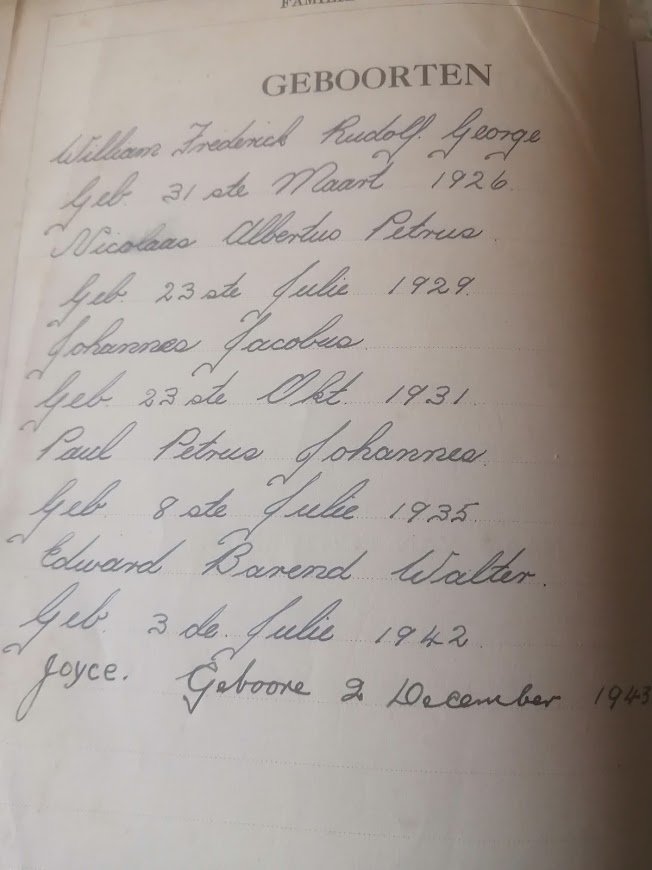 FAMILIE
GEBOORTEN
William Frederick Rudolf. George
Geb. 31 ste Maart 1926.
Nicolaas Albertus Petrus.
Geb. 23 ste Julie 1929.
Johannes Jacobus.
Geb. 23 ste Okt. 1931.
Paul Petrus Johannes.
Geb. 8 ste Julie 1935.
Edward Barend Walter.
Geb. 3 de. Julie 1942.
Joyce. Geboore 2 December 1943